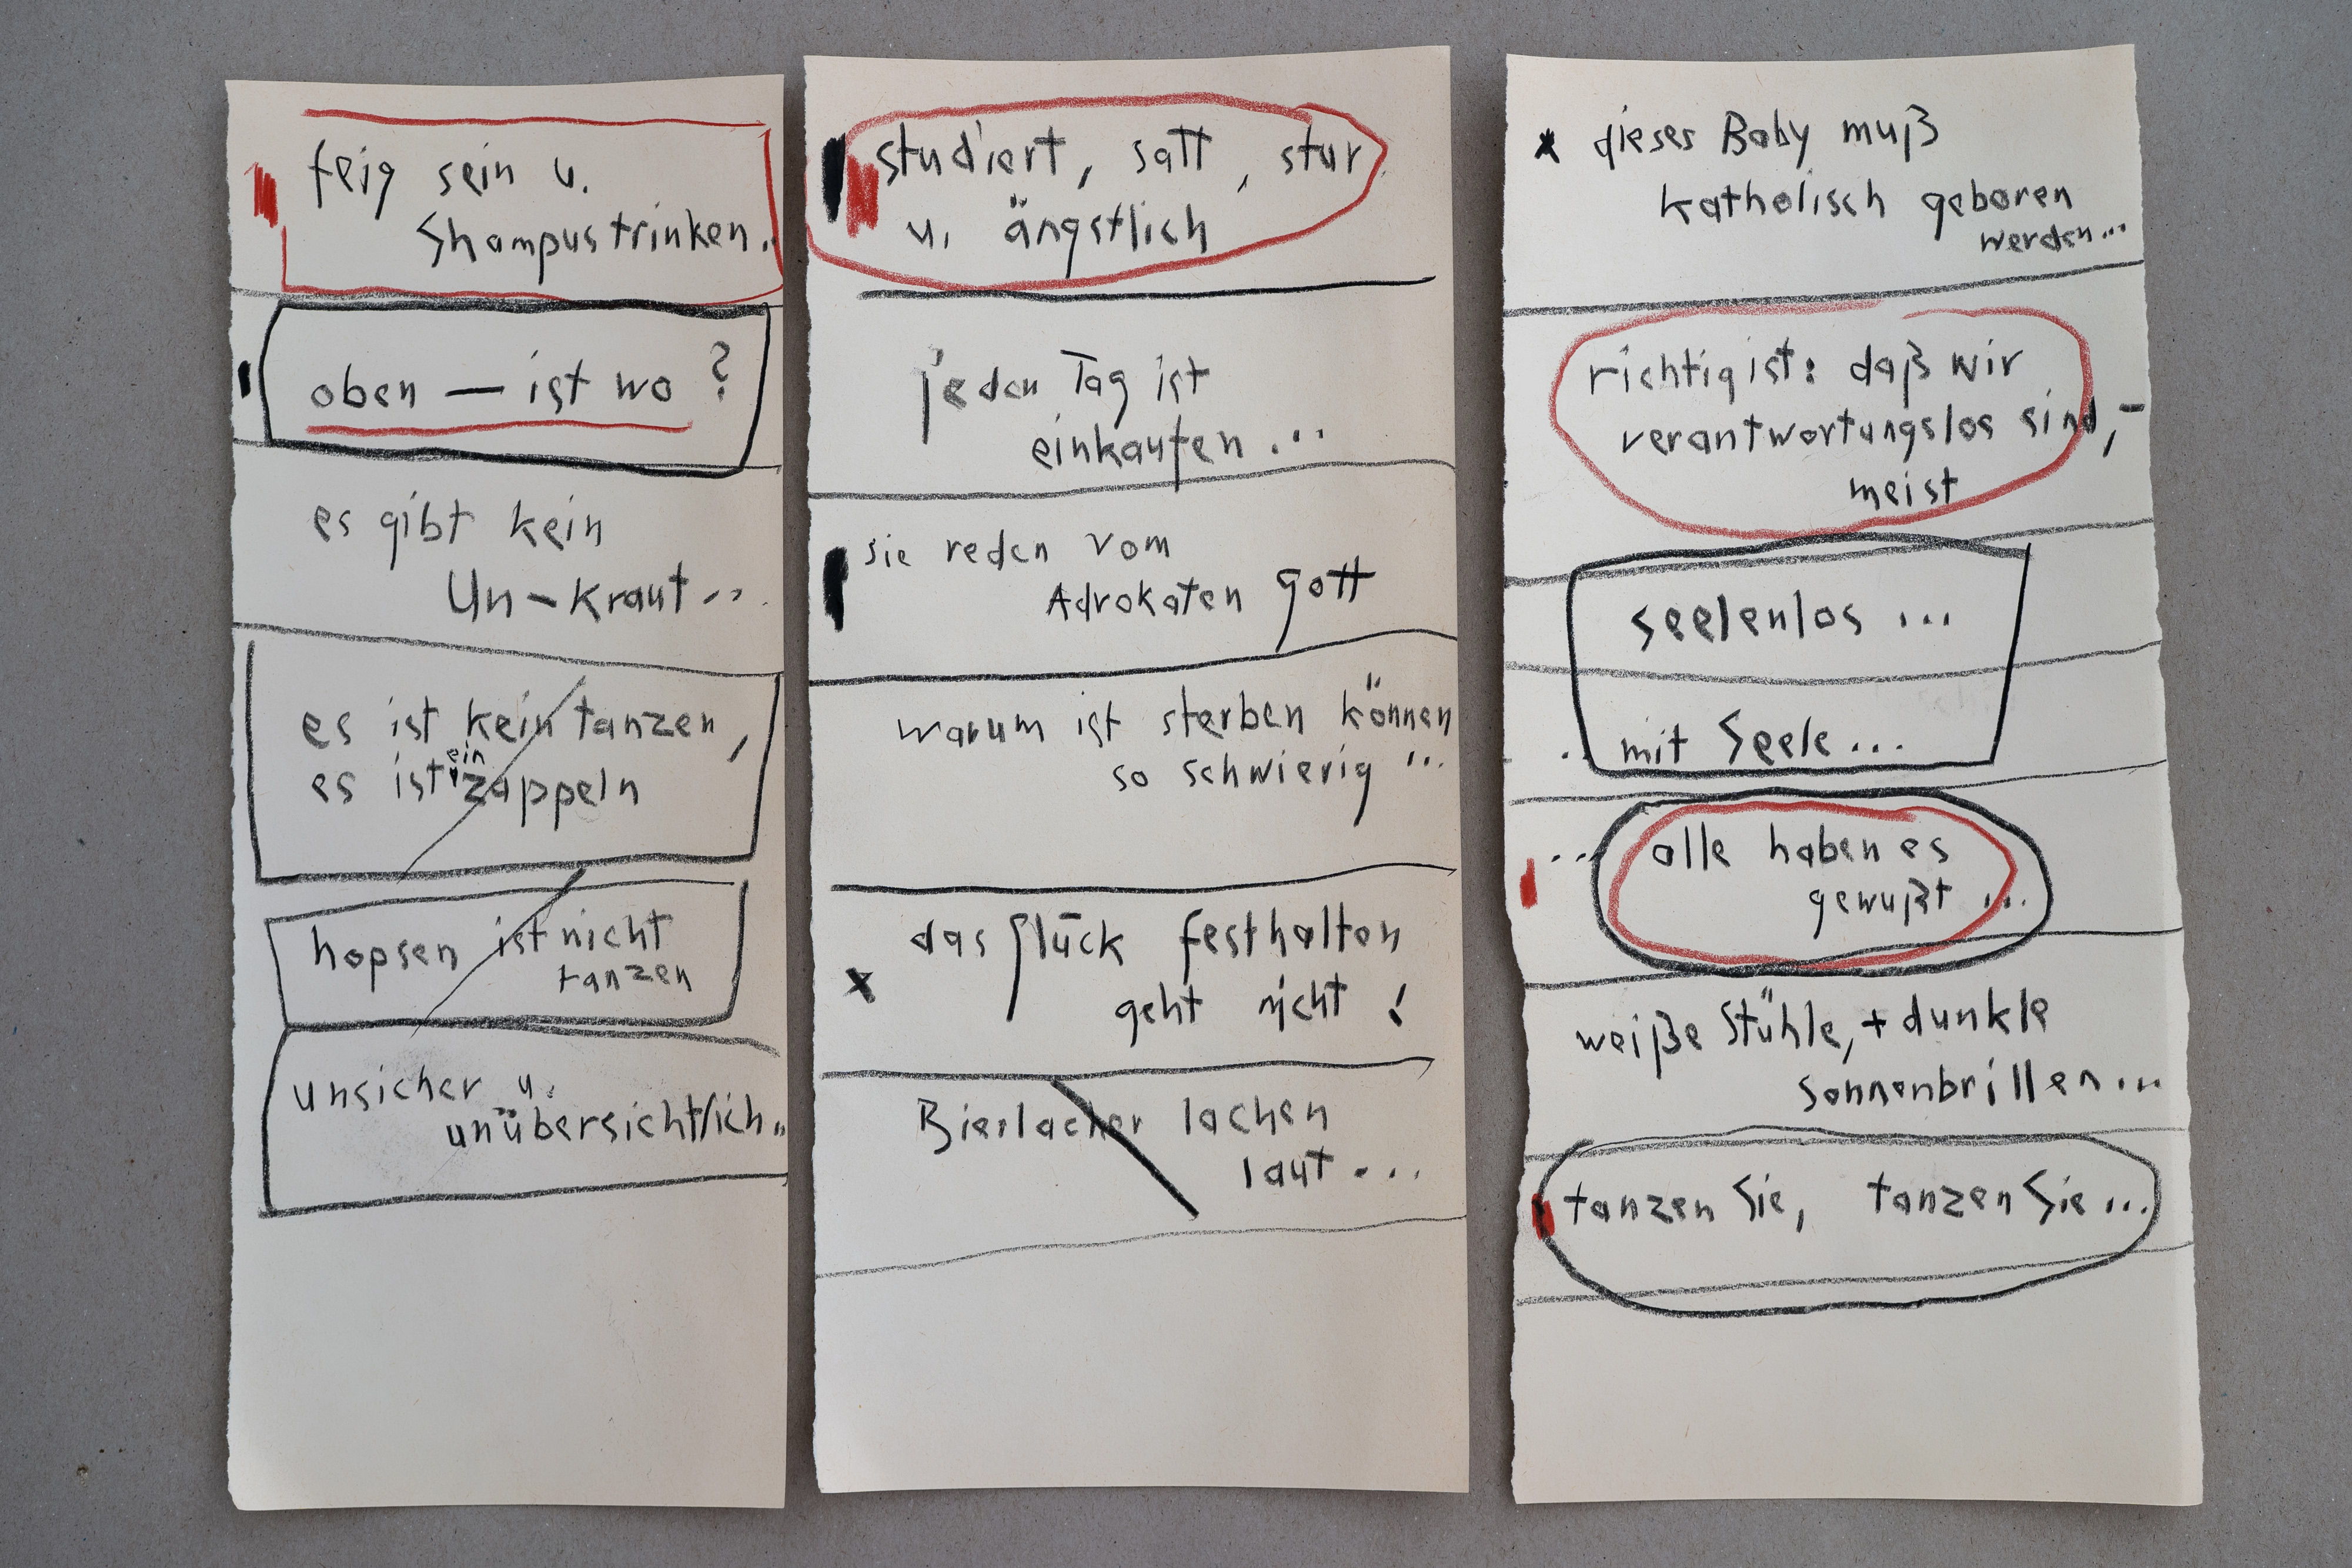 feig sein u.
Shampustrinken..
oben — ist wo ?
es gibt kein
Un-kraut...
es ist kein tanzen,
es ist ein zappeln
hopsen ist nicht
tanzen
unsicher u.
unübersichtlich..
studiert, satt, stur
u. ängstlich
jeden Tag ist
einkaufen...
sie reden vom
Advokaten gott
warum ist sterben können
so schwierig ...
das glück festhalten
geht nicht !
Bierlacher lachen
laut ...
dieses Baby muß
katholisch geboren
werden...
richtig ist: daß wir
verantwortungslos sind,-
meist
seelenlos ...
.. mit Seele...
... alle haben es
gewußt ...
weiße Stühle, + dunkle
sonnenbrillen...
tanzen Sie, tanzen Sie...